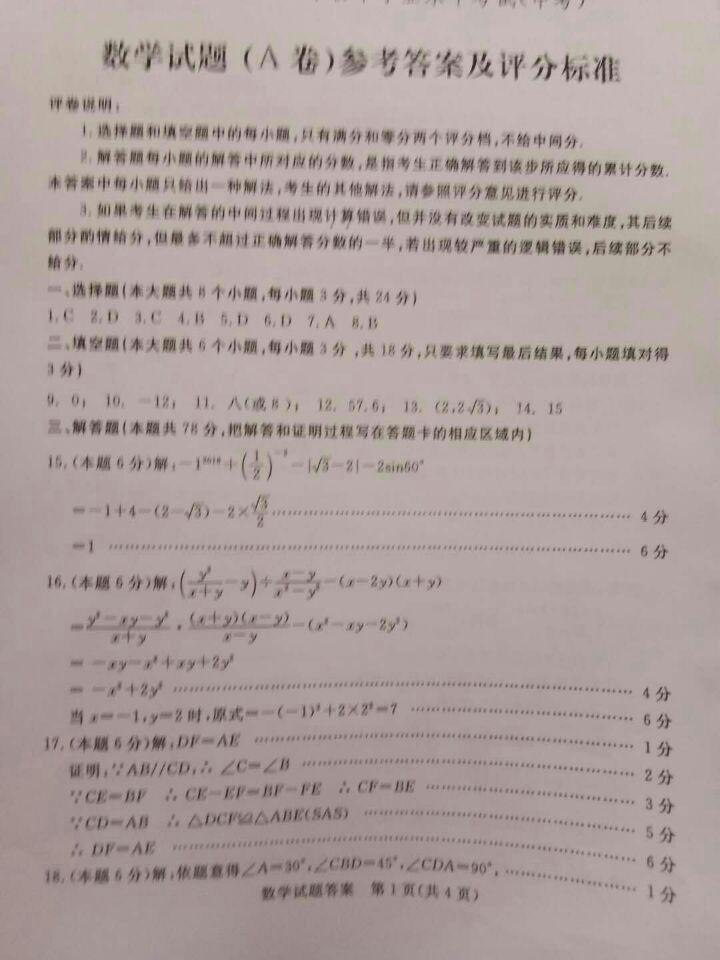 数学试题（A 卷）参考答案及评分标准
评卷说明：
1. 选择题和填空题中的每小题，只有满分和零分两个评分档，不给中间分.
2. 解答题每小题的解答中所对应的分数，是指考生正确解答到该步所应得的累计分数.
本答案中每小题只给出一种解法，考生的其他解法，请参照评分意见进行评分.
3. 如果考生在解答的中间过程出现计算错误，但并没有改变试题的实质和难度，其后续
部分酌情给分，但最多不超过正确解答分数的一半，若出现较严重的逻辑错误，后续部分不
给分.
一、选择题（本大题共 8 个小题，每小题 3 分，共 24 分）
1. C 2. D 3. C 4. B 5. D 6. D 7. A 8. B
二、填空题（本大题共 6 个小题，每小题 3 分，共 18 分，只要求填写最后结果，每小题填对得
3 分）
9. 0； 10. －12； 11. 八（或 8）； 12. 57.6； 13. (2,2√3)； 14. 15
三、解答题（本题共 78 分，把解答和证明过程写在答题卡的相应区域内）
15.（本题 6 分）解：－1²⁰¹⁸＋(1/2)⁻²－|√3－2|－2sin60°
＝－1＋4－(2－√3)－2×√3/2 …… 4 分
＝1 …… 6 分
16.（本题 6 分）解：(y²/(x＋y)－y)÷(x－y)/(x²－y²)－(x－2y)(x＋y)
＝(y²－xy－y²)/(x＋y)·(x＋y)(x－y)/(x－y)－(x²－xy－2y²)
＝－xy－x²＋xy＋2y²
＝－x²＋2y² …… 4 分
当 x＝－1，y＝2 时，原式＝－(－1)²＋2×2²＝7 …… 6 分
17.（本题 6 分）解：DF＝AE …… 1 分
证明：∵AB//CD，∴∠C＝∠B …… 2 分
∵CE＝BF ∴CE－EF＝BF－FE ∴CF＝BE …… 3 分
∵CD＝AB ∴△DCF≌△ABE(SAS) …… 5 分
∴DF＝AE …… 6 分
18.（本题 6 分）解：依题意得∠A＝30°，∠CBD＝45°，∠CDA＝90°， …… 1 分
数学试题答案 第 1 页（共 4 页）